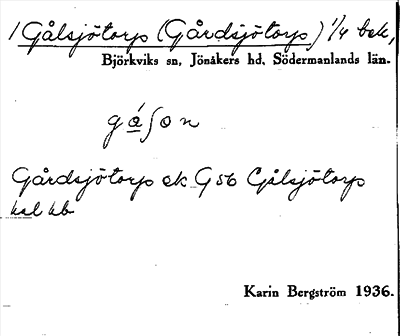 1 Gålsjötorp (Gårdsjötorp) 1/4 bsk,
Björkviks sn, Jönåkers hd, Södermanlands län.
gá̱ʃon
Gårdsjötorp ek G 56 Gålsjötorp
hsl hb
Karin Bergström 1936.